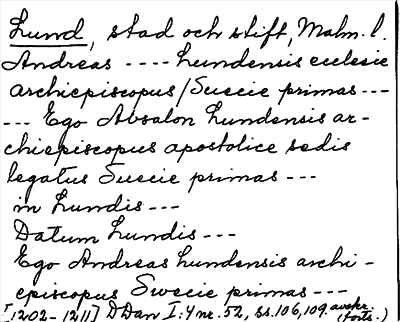 Lund, stad och stift, Malm. l.
Andreas ---- Lundensis ecclesie
archiepiscopus/Suecie primas ---
--- Ego Absalon Lundensis ar-
chiepiscopus apostolice sedis
legatus Suecie primas ---
in Lundis ---
Datum Lundis ---
Ego Andreas Lundensis archi-
episcopus Swecie primas ---
[1202-1211] DDan I:4 nr. 52, ss. 106, 109. avskr.
(forts.)